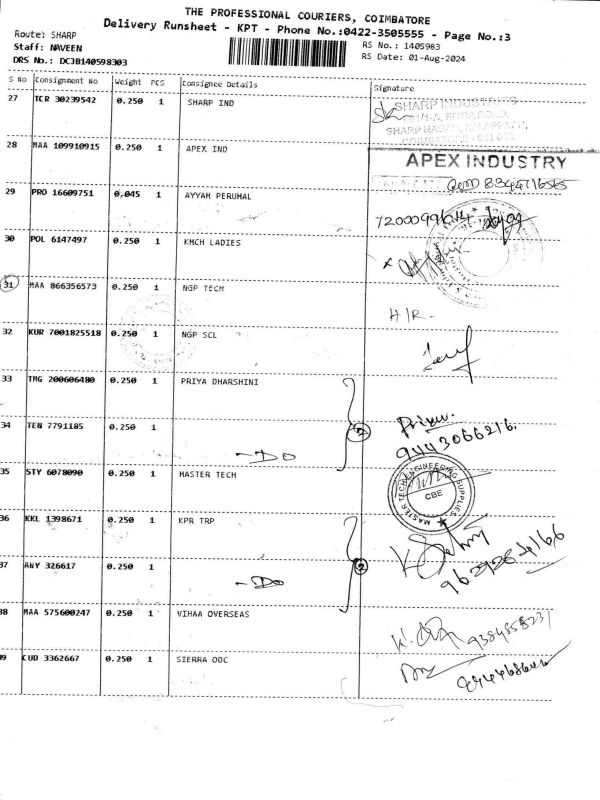 THE PROFESSIONAL COURIERS, COIMBATORE
Delivery Runsheet - KPT - Phone No.:0422-3505555 - Page No.:3
Route: SHARP
Staff: NAVEEN
DRS No.: DCJB140598303
RS No.: 1405983
RS Date: 01-Aug-2024
S No Consignment No Weight PCS Consignee Details Signature
27 TCR 30239542 0.250 1 SHARP IND
SHARP INDUSTRIES
28 MAA 109910915 0.250 1 APEX IND
APEX INDUSTRY
29 PRO 16609751 0.045 1 AYYAM PERUMAL
30 POL 6147497 0.250 1 KMCH LADIES
31 MAA 866356573 0.250 1 NGP TECH
H/R-
32 KUR 7001825518 0.250 1 NGP SCL
33 TMG 200606480 0.250 1 PRIYA DHARSHINI
Priya.
9443066216.
34 TEN 7791185 0.250 1 -DO 2
35 STY 6078090 0.250 1 MASTER TECH
MASTER TECH ENGINEERING SUPPLIES
CBE
36 KKL 1398671 0.250 1 KPR TRP
37 ANY 326617 0.250 1 -Do 2
38 MAA 575600247 0.250 1 VIHAA OVERSEAS
39 CUD 3362667 0.250 1 SIERRA ODC